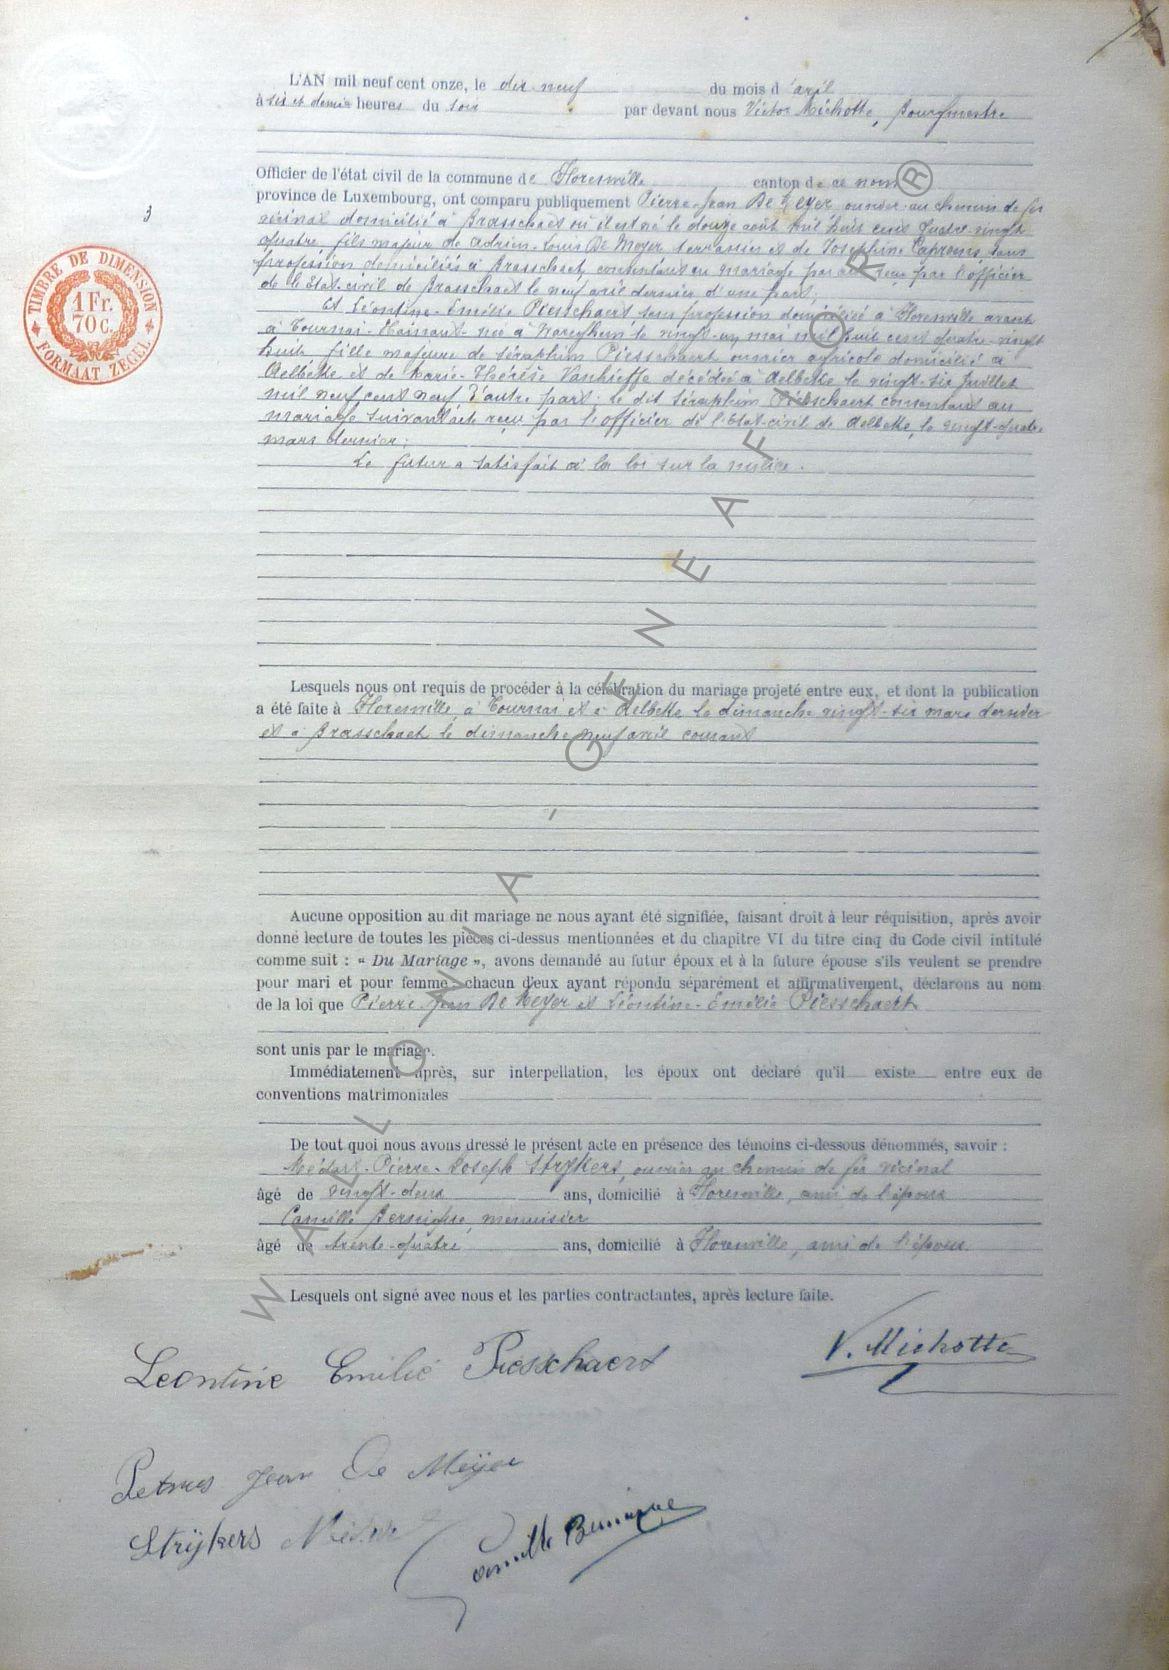 L'AN mil neuf cent onze, le dix neuf du mois d'avril
à six et demie heures du soir par devant nous Victor Michotte, Bourgmestre
Officier de l'état civil de la commune de Florenville canton de ce nom
province de Luxembourg, ont comparu publiquement Pierre-Jean De Meyer ouvrier au chemin de fer
vicinal domicilié à Brasschaet où il est né le douze août mil huit cent quatre-vingt
quatre fils majeur de Adrien-Louis De Meyer terrassier et de Joséphine sans
profession domiciliés à Brasschaet, consentant au mariage par acte reçu par l'officier
de l'Etat civil de Brasschaet le neuf avril dernier d'une part;
Et Léontine-Emélie Piesschaert sans profession domiciliée à Florenville avant
à Tournai-Hainaut née à le vingt-un mai mil huit cent quatre-vingt
huit fille majeure de Séraphin Piesschaert ouvrier agricole domicilié à
Aelbeke et de Marie-Thérèse décédée à Aelbeke le vingt-six juillet
mil neuf cent neuf d'autre part; le dit Séraphin Piesschaert consentant au
mariage suivant acte reçu par l'officier de l'Etat-civil de Aelbeke, le vingt-quatre
mars dernier;
Le futur a satisfait à la loi sur la milice.
3
TIMBRE DE DIMENSION
1 Fr.
70 c.
FORMAAT ZEGEL
Lesquels nous ont requis de procéder à la célébration du mariage projeté entre eux, et dont la publication
a été faite à Florenville, à Tournai et à Aelbeke le dimanche vingt-six mars dernier
et à Brasschaet le dimanche neuf avril courant
Aucune opposition au dit mariage ne nous ayant été signifiée, faisant droit à leur réquisition, après avoir
donné lecture de toutes les pièces ci-dessus mentionnées et du chapitre VI du titre cinq du Code civil intitulé
comme suit : « Du Mariage », avons demandé au futur époux et à la future épouse s'ils veulent se prendre
pour mari et pour femme, chacun d'eux ayant répondu séparément et affirmativement, déclarons au nom
de la loi que Pierre-Jean De Meyer et Léontine-Emélie Piesschaert
sont unis par le mariage.
Immédiatement après, sur interpellation, les époux ont déclaré qu'il existe entre eux de
conventions matrimoniales
De tout quoi nous avons dressé le présent acte en présence des témoins ci-dessous dénommés, savoir :
Médard-Pierre-Joseph Strykers, ouvrier au chemin de fer vicinal
âgé de vingt-deux ans, domicilié à Florenville, ami de l'époux
Camille menuisier
âgé de trente-quatre ans, domicilié à Florenville, ami de l'époux
Lesquels ont signé avec nous et les parties contractantes, après lecture faite.
Leontine Emilie Piesschaert
V. Michotte
Petrus Jean De Meijer
Strijkers Médard
Camille
WALLONIA - GENEAFLOR ®